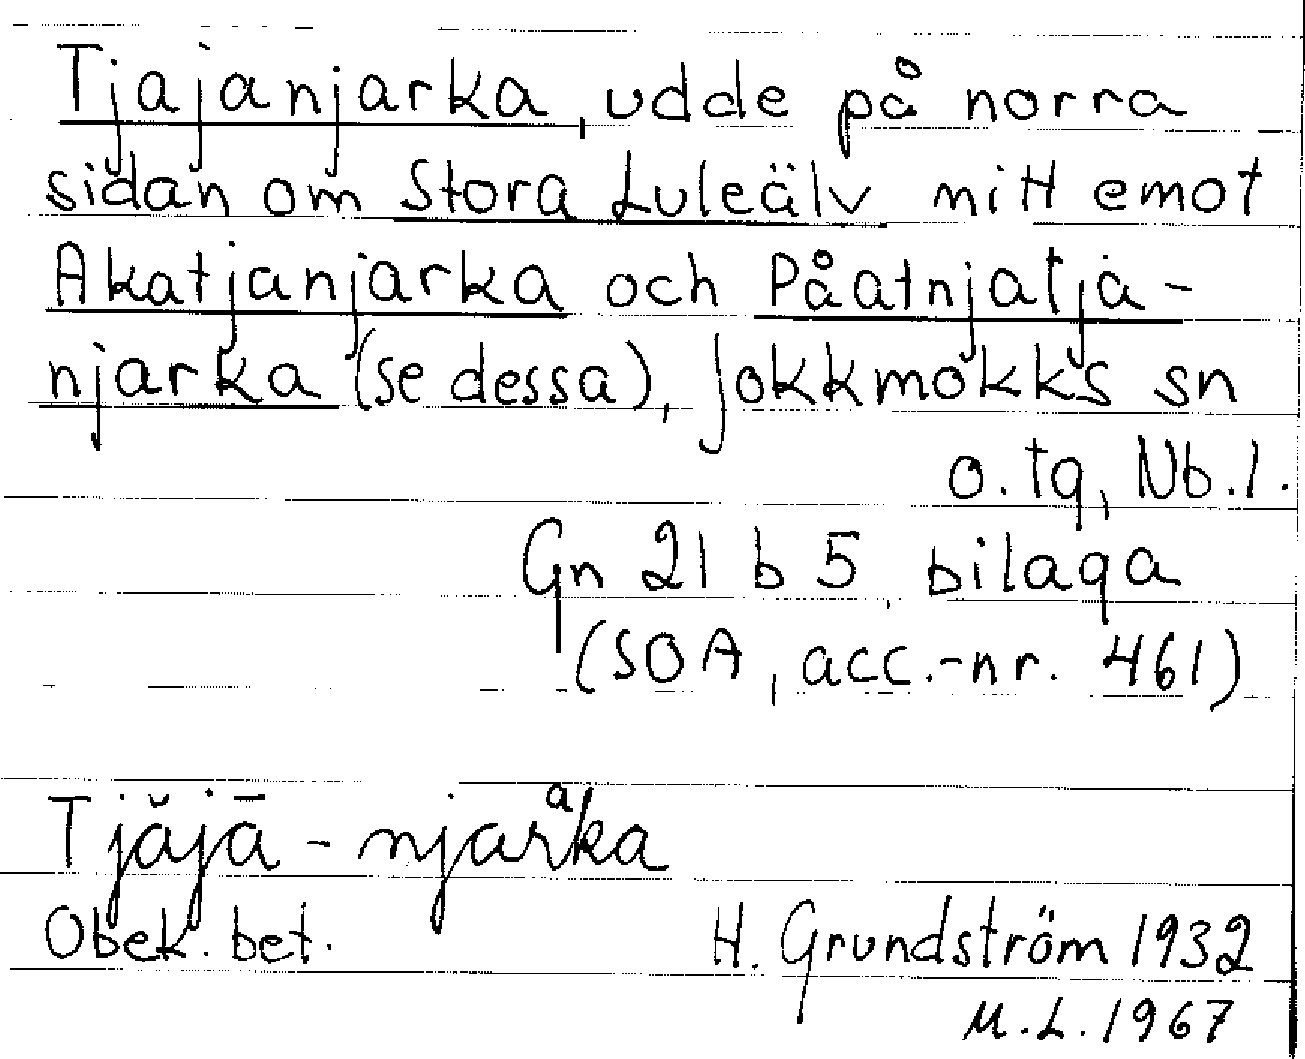 Tjajanjarka, udde på norra
sidan om Stora Luleälv mitt emot
Akatjanjarka och Påatnjatja-
njarka (se dessa), Jokkmokks sn
o. tg, Nb.l.
Gn 21 b 5, bilaga
(SOA, acc.-nr. 461)
Tjăjā-njarᵃka
Obek. bet. H. Grundström 1932
M.L. 1967